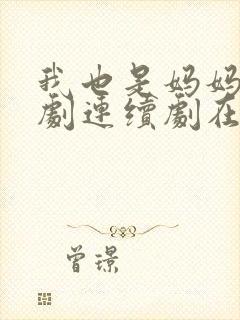 我也是妈妈
劇連續劇在
曾璟